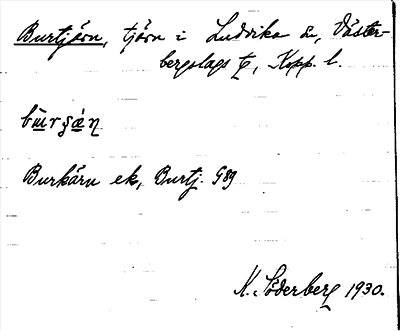 Burtjärn, tjärn i Ludvika sn, Väster-
bergslags tg, Kopp. l.
Burkärn ek, Burtj. G89
N. Söderberg 1930.